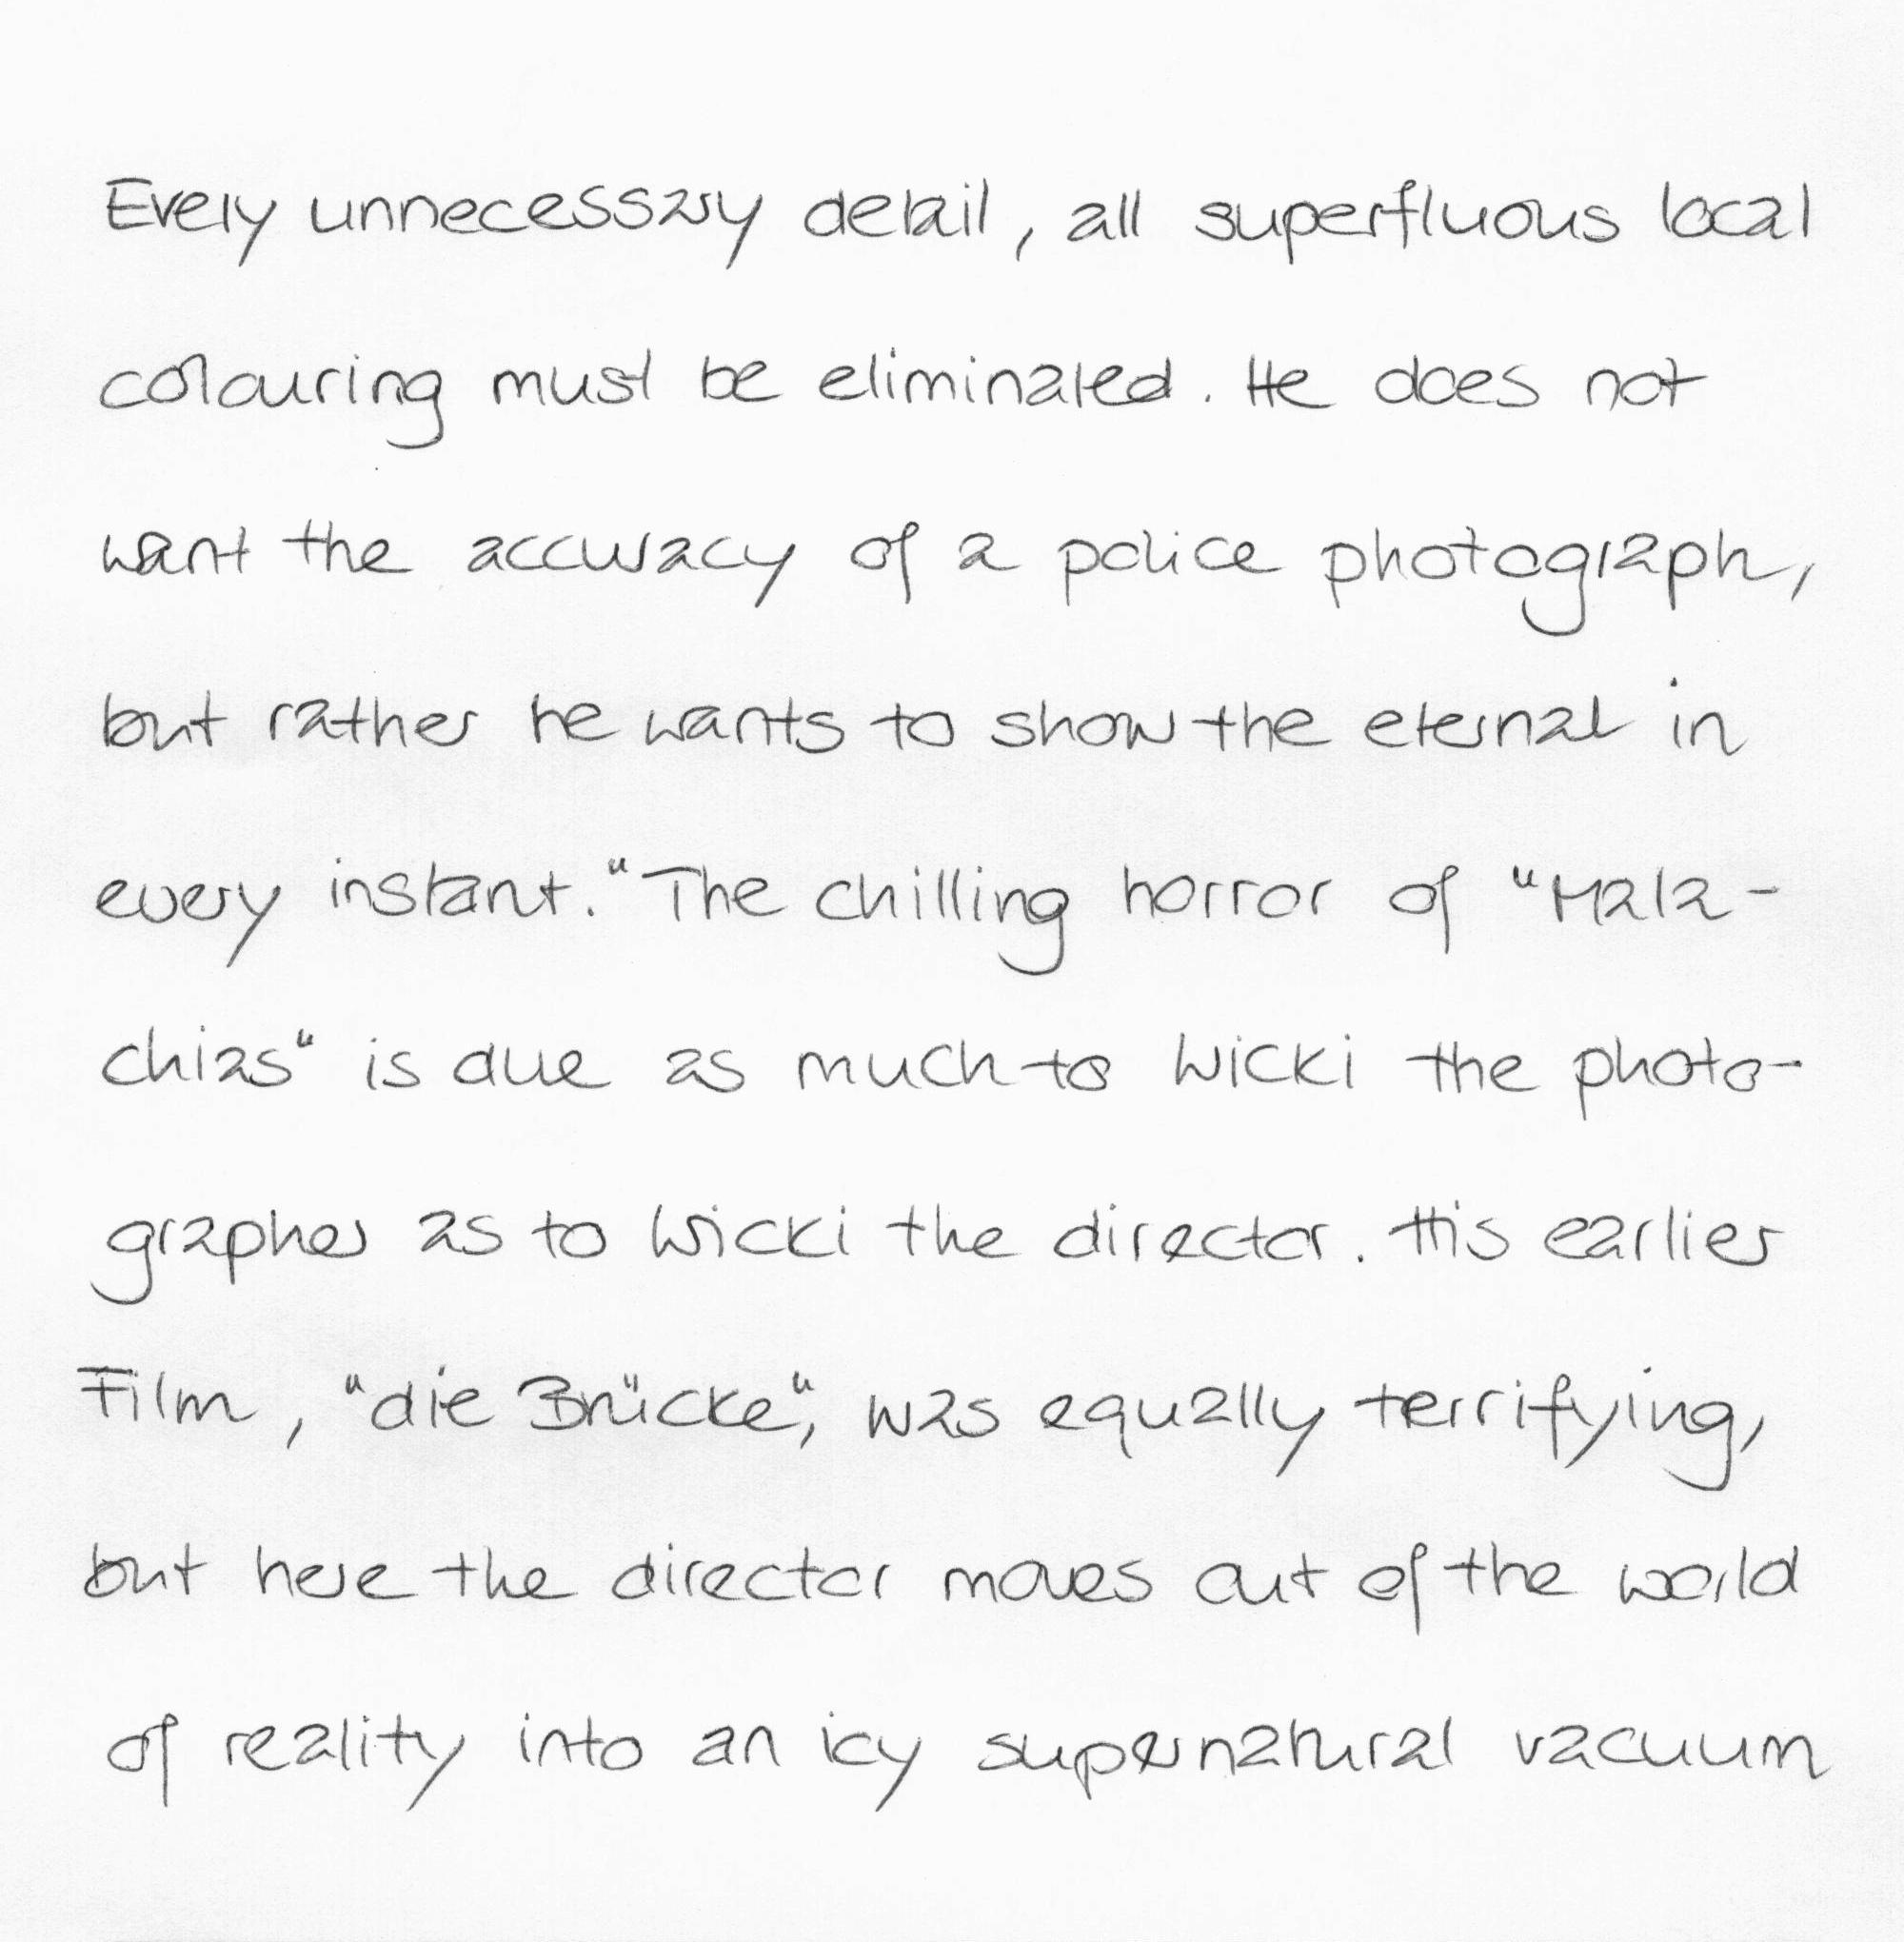 Every unnecessary detail, all superfluous local
colouring must be eliminated. He does not
want the accuracy of a police photograph,
but rather he wants to show the eternal in
every instant." The chilling horror of "Mala-
chias" is due as much to Wicki the photo-
grapher as to Wicki the director. His earlier
Film, "die Brücke", was equally terrifying,
but here the director moves out of the world
of reality into an icy supernatural vacuum